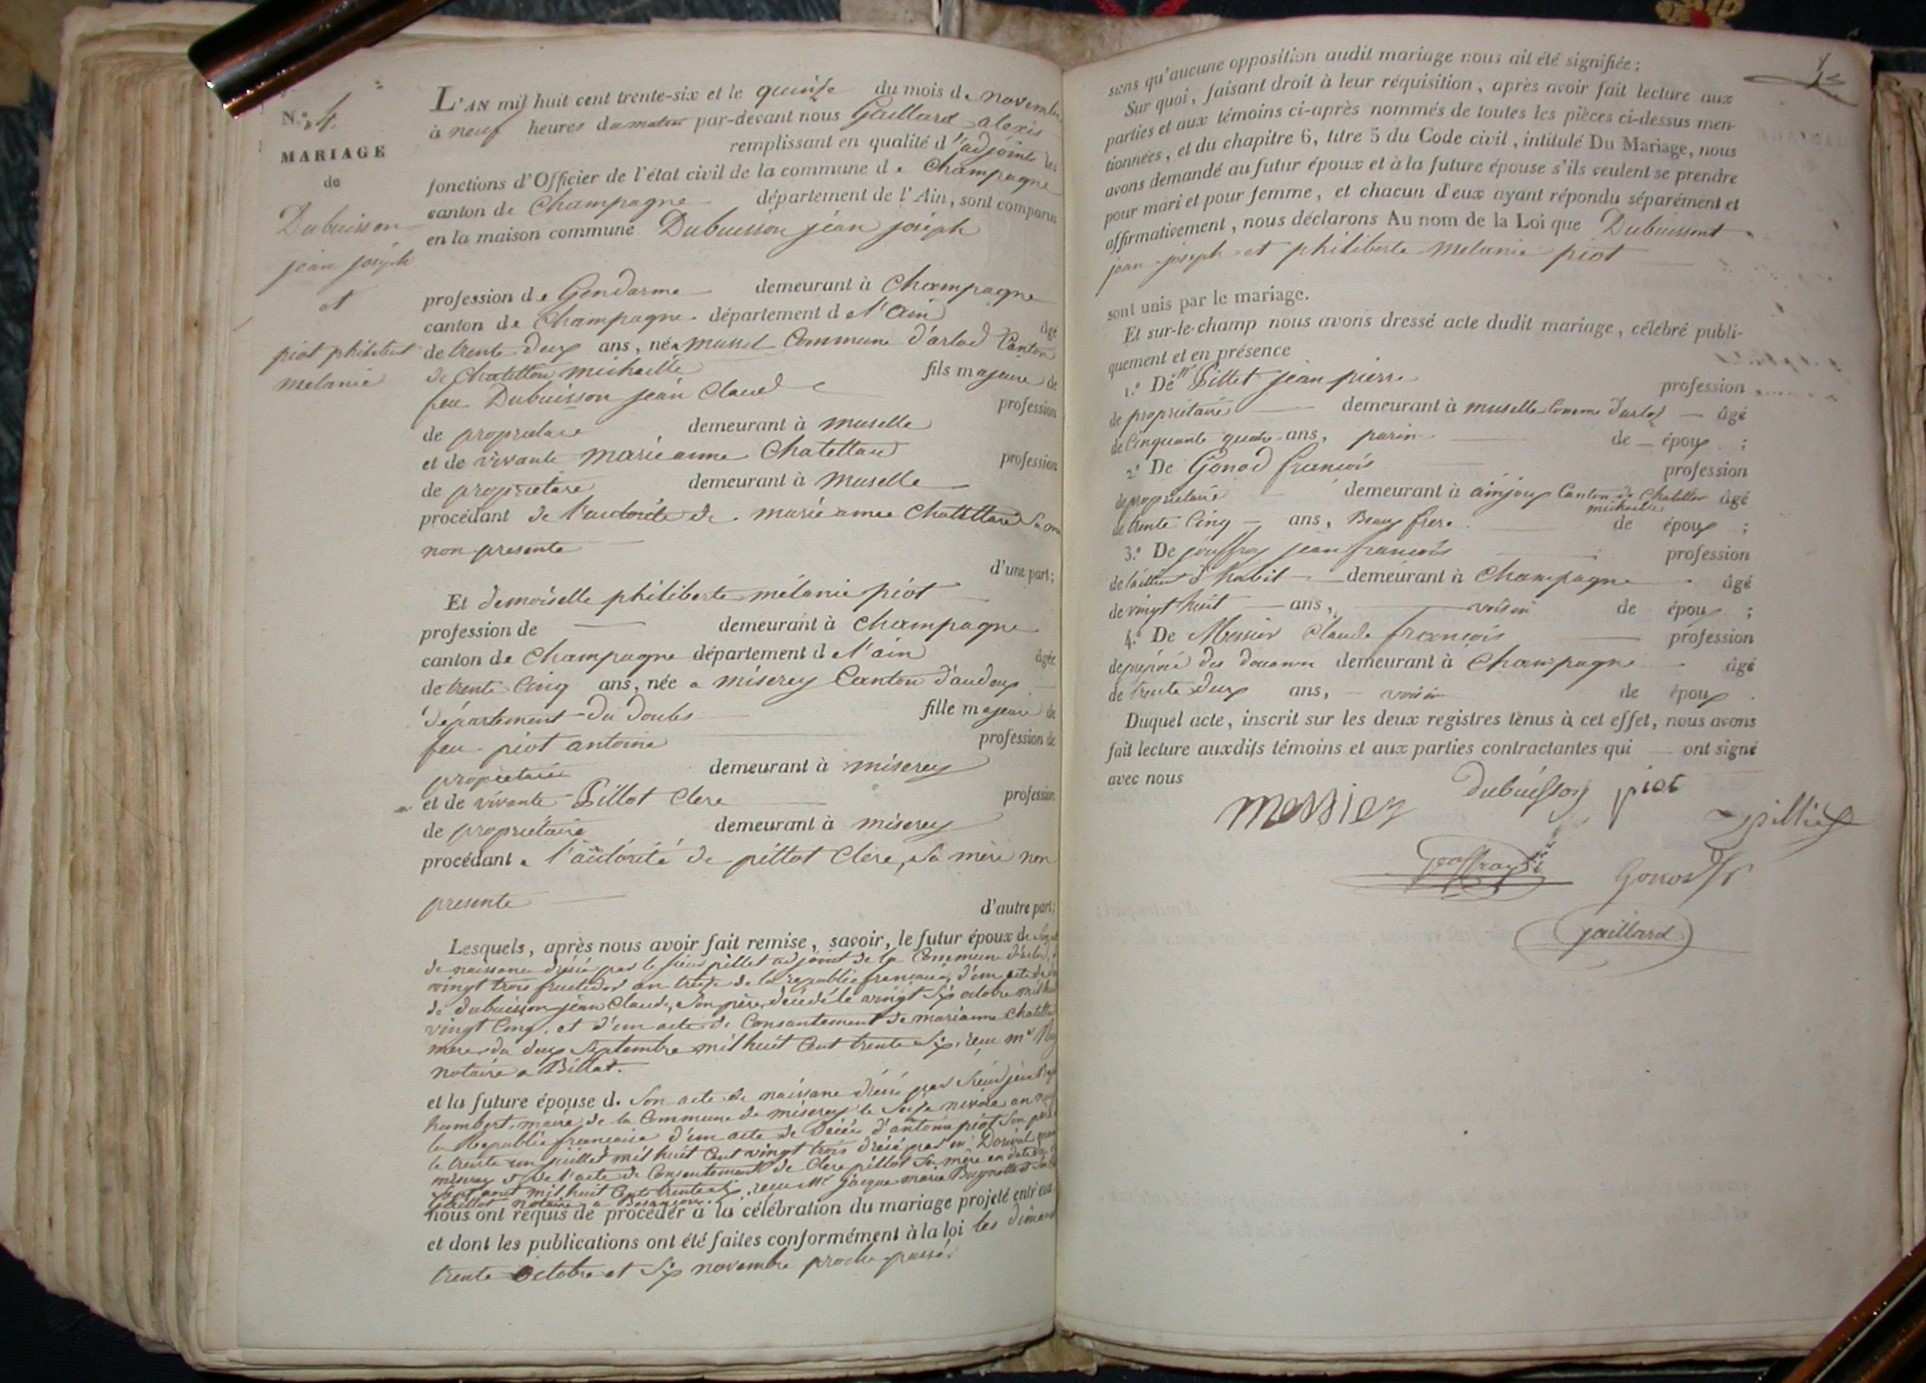 N.º 4.
MARIAGE
de
Dubuisson
jean joseph
et
piot philiberte
melanie
L'AN mil huit cent trente-six et le quinze du mois de novembre
à neuf heures du matin par-devant nous Gaillard alexis
remplissant en qualité d'adjoint les
fonctions d'Officier de l'état civil de la commune de Champagne
canton de Champagne département de l'Ain, sont comparus
en la maison commune Dubuisson jean joseph
profession de Gendarme demeurant à Champagne
canton de Champagne département de l'ain âgé
de trente deux ans, né a mussel Commune d'arlod Canton
de Chatillon michaille fils majeur de
feu Dubuisson jean Claude profession
de propriétaire demeurant à muselle
et de vivante marie anne Chatellard profession
de propriétaire demeurant à muselle
procédant de l'autorité de marie anne Chatellard sa mère
non presente
d'une part;
Et demoiselle philiberte mélanie piot
profession de demeurant à Champagne
canton de Champagne département de l'ain âgée
de trente cinq ans, née a miserey Canton d'audeux
département du doubs fille majeure de
feu piot antoine profession de
propriétaire demeurant à miserey
et de vivante Pillot Clere profession
de propriétaire demeurant à miserey
procédant de l'autorité de pillot Clere, sa mère non
presente
d'autre part;
Lesquels, après nous avoir fait remise, savoir, le futur époux de son acte
de naissance par le sieur pillet adjoint de la Commune d'arlod,
vingt trois fructidor an treize de la republic française, d'un acte de
de dubuisson jean Claude, son père, décédé le vingt six octobre mil huit
vingt cinq, et d'un acte de Consantement de marianne Chatellard
mere du deux Septembre mil huit Cent trente six, reçu me
notaire a Billiat.
et la future épouse de son acte de naissane par Sieur jean
humbert maire de la Commune de miserey le Seize nivose an
la Republic française d'un acte de Décés d'antoine piot son père
le trente un juillet mil huit Cent vingt trois par
miserey et de l'acte de Consentement de Clere pillot sa mère en date du
aout mil huit Cent trente six, reçu Me jacque marie
notaire a Besançon.
nous ont requis de procéder à la célébration du mariage projeté entr'eux
et dont les publications ont été faites conformément à la loi les dimanches
trente Octobre et six novembre proche passé.
sans qu'aucune opposition audit mariage nous ait été signifiée;
Sur quoi, faisant droit à leur réquisition, après avoir fait lecture aux
parties et aux témoins ci-après nommés de toutes les pièces ci-dessus men-
tionnées, et du chapitre 6, titre 5 du Code civil, intitulé Du Mariage, nous
avons demandé au futur époux et à la future épouse s'ils veulent se prendre
pour mari et pour femme, et chacun d'eux ayant répondu séparément et
affirmativement, nous déclarons Au nom de la Loi que Dubuisson
jean joseph et philiberte melanie piot
sont unis par le mariage.
Et sur-le-champ nous avons dressé acte dudit mariage, célébré publi-
quement et en présence
1.º De Mr Pillet jean pierre profession
de propriétaire demeurant à muselle Comune d'arlod âgé
de Cinquante quatre ans, parin de époux;
2.º De Gonod françois profession
de propriétaire demeurant à injoux Canton de Chatillon michaille âgé
de trente Cinq ans, Beau frere de époux;
3.º De jouffroy jean francois profession
de tailleur d'habit demeurant à Champagne âgé
de vingt huit ans, voisin de époux;
4.º De Messier Claude françois profession
de préposé des douanes demeurant à Champagne âgé
de trente deux ans, voisin de époux.
Duquel acte, inscrit sur les deux registres tenus à cet effet, nous avons
fait lecture auxdits témoins et aux parties contractantes qui ont signé
avec nous
messier dubuisson piot
pillet
jouffroy Gonod fr
gaillard